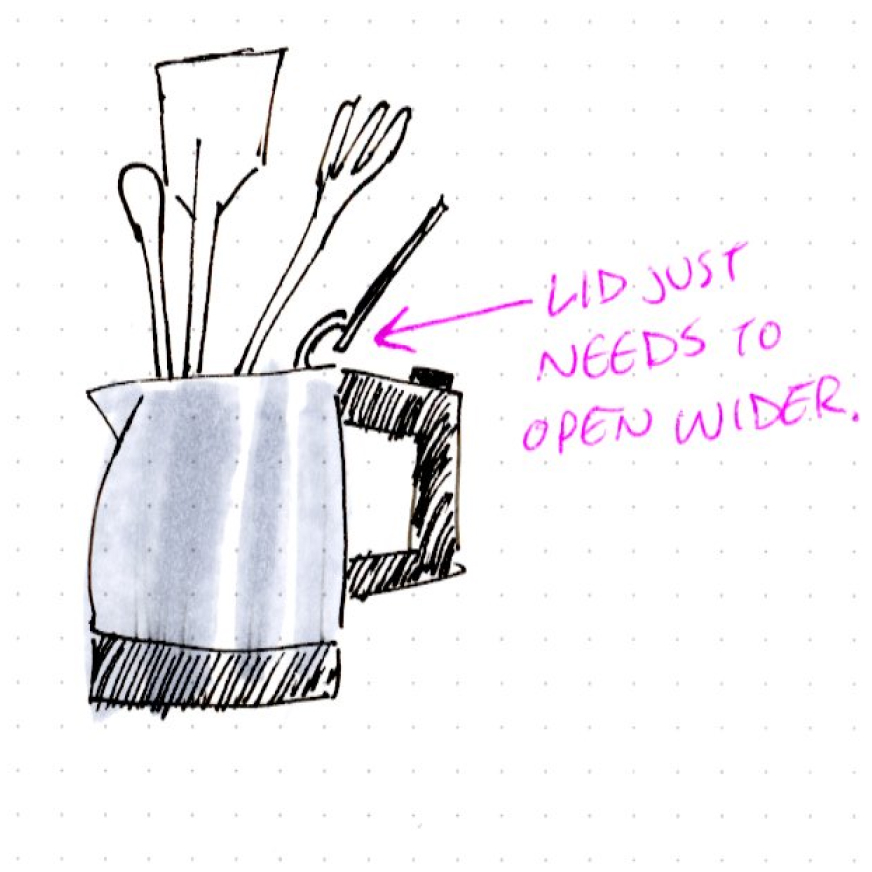 LID JUST
NEEDS TO
OPEN WIDER.